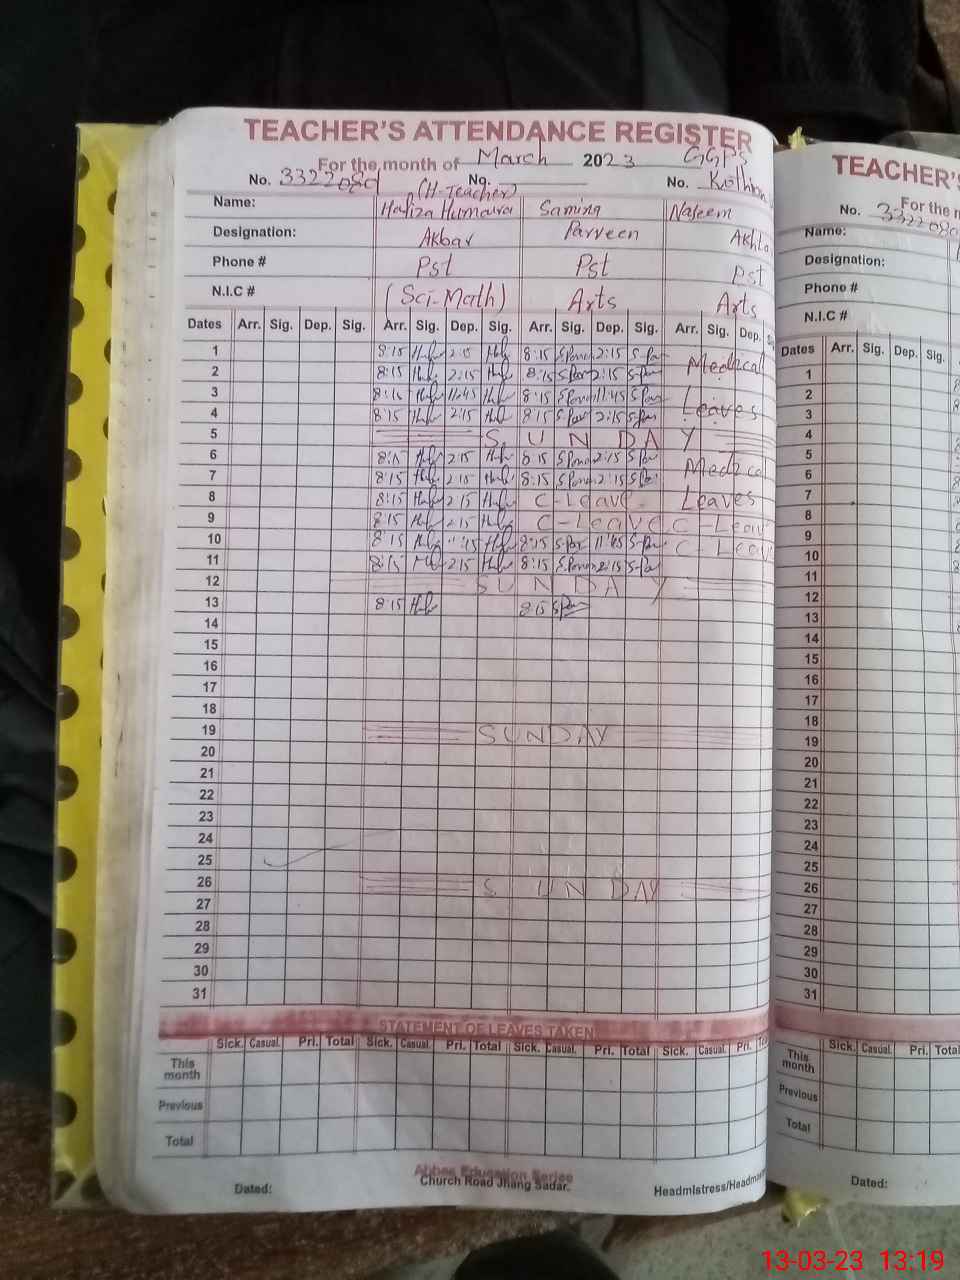 TEACHER'S ATTENDANCE REGISTER
For the month of March 2023 GGPS
No. 3322089 (H-Teacher) No. No.
Name: Hafiza Humaira Samina Naseem
Designation: Akbar Parveen
Phone # Pst Pst Pst
N.I.C # (Sci-Math) Arts Arts
Dates Arr. Sig. Dep. Sig. Arr. Sig. Dep. Sig. Arr. Sig. Dep. Sig. Arr. Sig. Dep.
1 8:15 2:15 8:15 2:15 Medical
2 8:15 2:15 8:15 2:15
3 8:15 11:45 8:15 11:45 Leaves
4 8:15 2:15 8:15 2:15
5 SUNDAY
6 8:15 2:15 8:15 2:15 Medical
7 8:15 2:15 8:15 2:15
8 8:15 2:15 C-Leave Leaves
9 8:15 2:15 C-Leave C-Leave
10 8:15 11:45 8:15 11:45 C-Leave
11 8:15 2:15 8:15 2:15
12 SUNDAY
13 8:15 8:15
14
15
16
17
18
19 SUNDAY
20
21
22
23
24
25
26 SUNDAY
27
28
29
30
31
STATEMENT OF LEAVES TAKEN
Sick. Casual. Pri. Total Sick. Casual. Pri. Total Sick. Casual. Pri. Total Sick. Casual. Pri.
This month
Previous
Total
Abbas Education Series
Church Road Jhang Sadar.
Dated: Headmistress/
TEACHER'S
For the
No. 3322089
Name:
Designation:
Phone #
N.I.C #
Dates Arr. Sig. Dep. Sig.
1
2
3
4
5
6
7
8
9
10
11
12
13
14
15
16
17
18
19
20
21
22
23
24
25
26
27
28
29
30
31
Sick. Casual. Pri. Total
This month
Previous
Total
Dated:
13-03-23 13:19